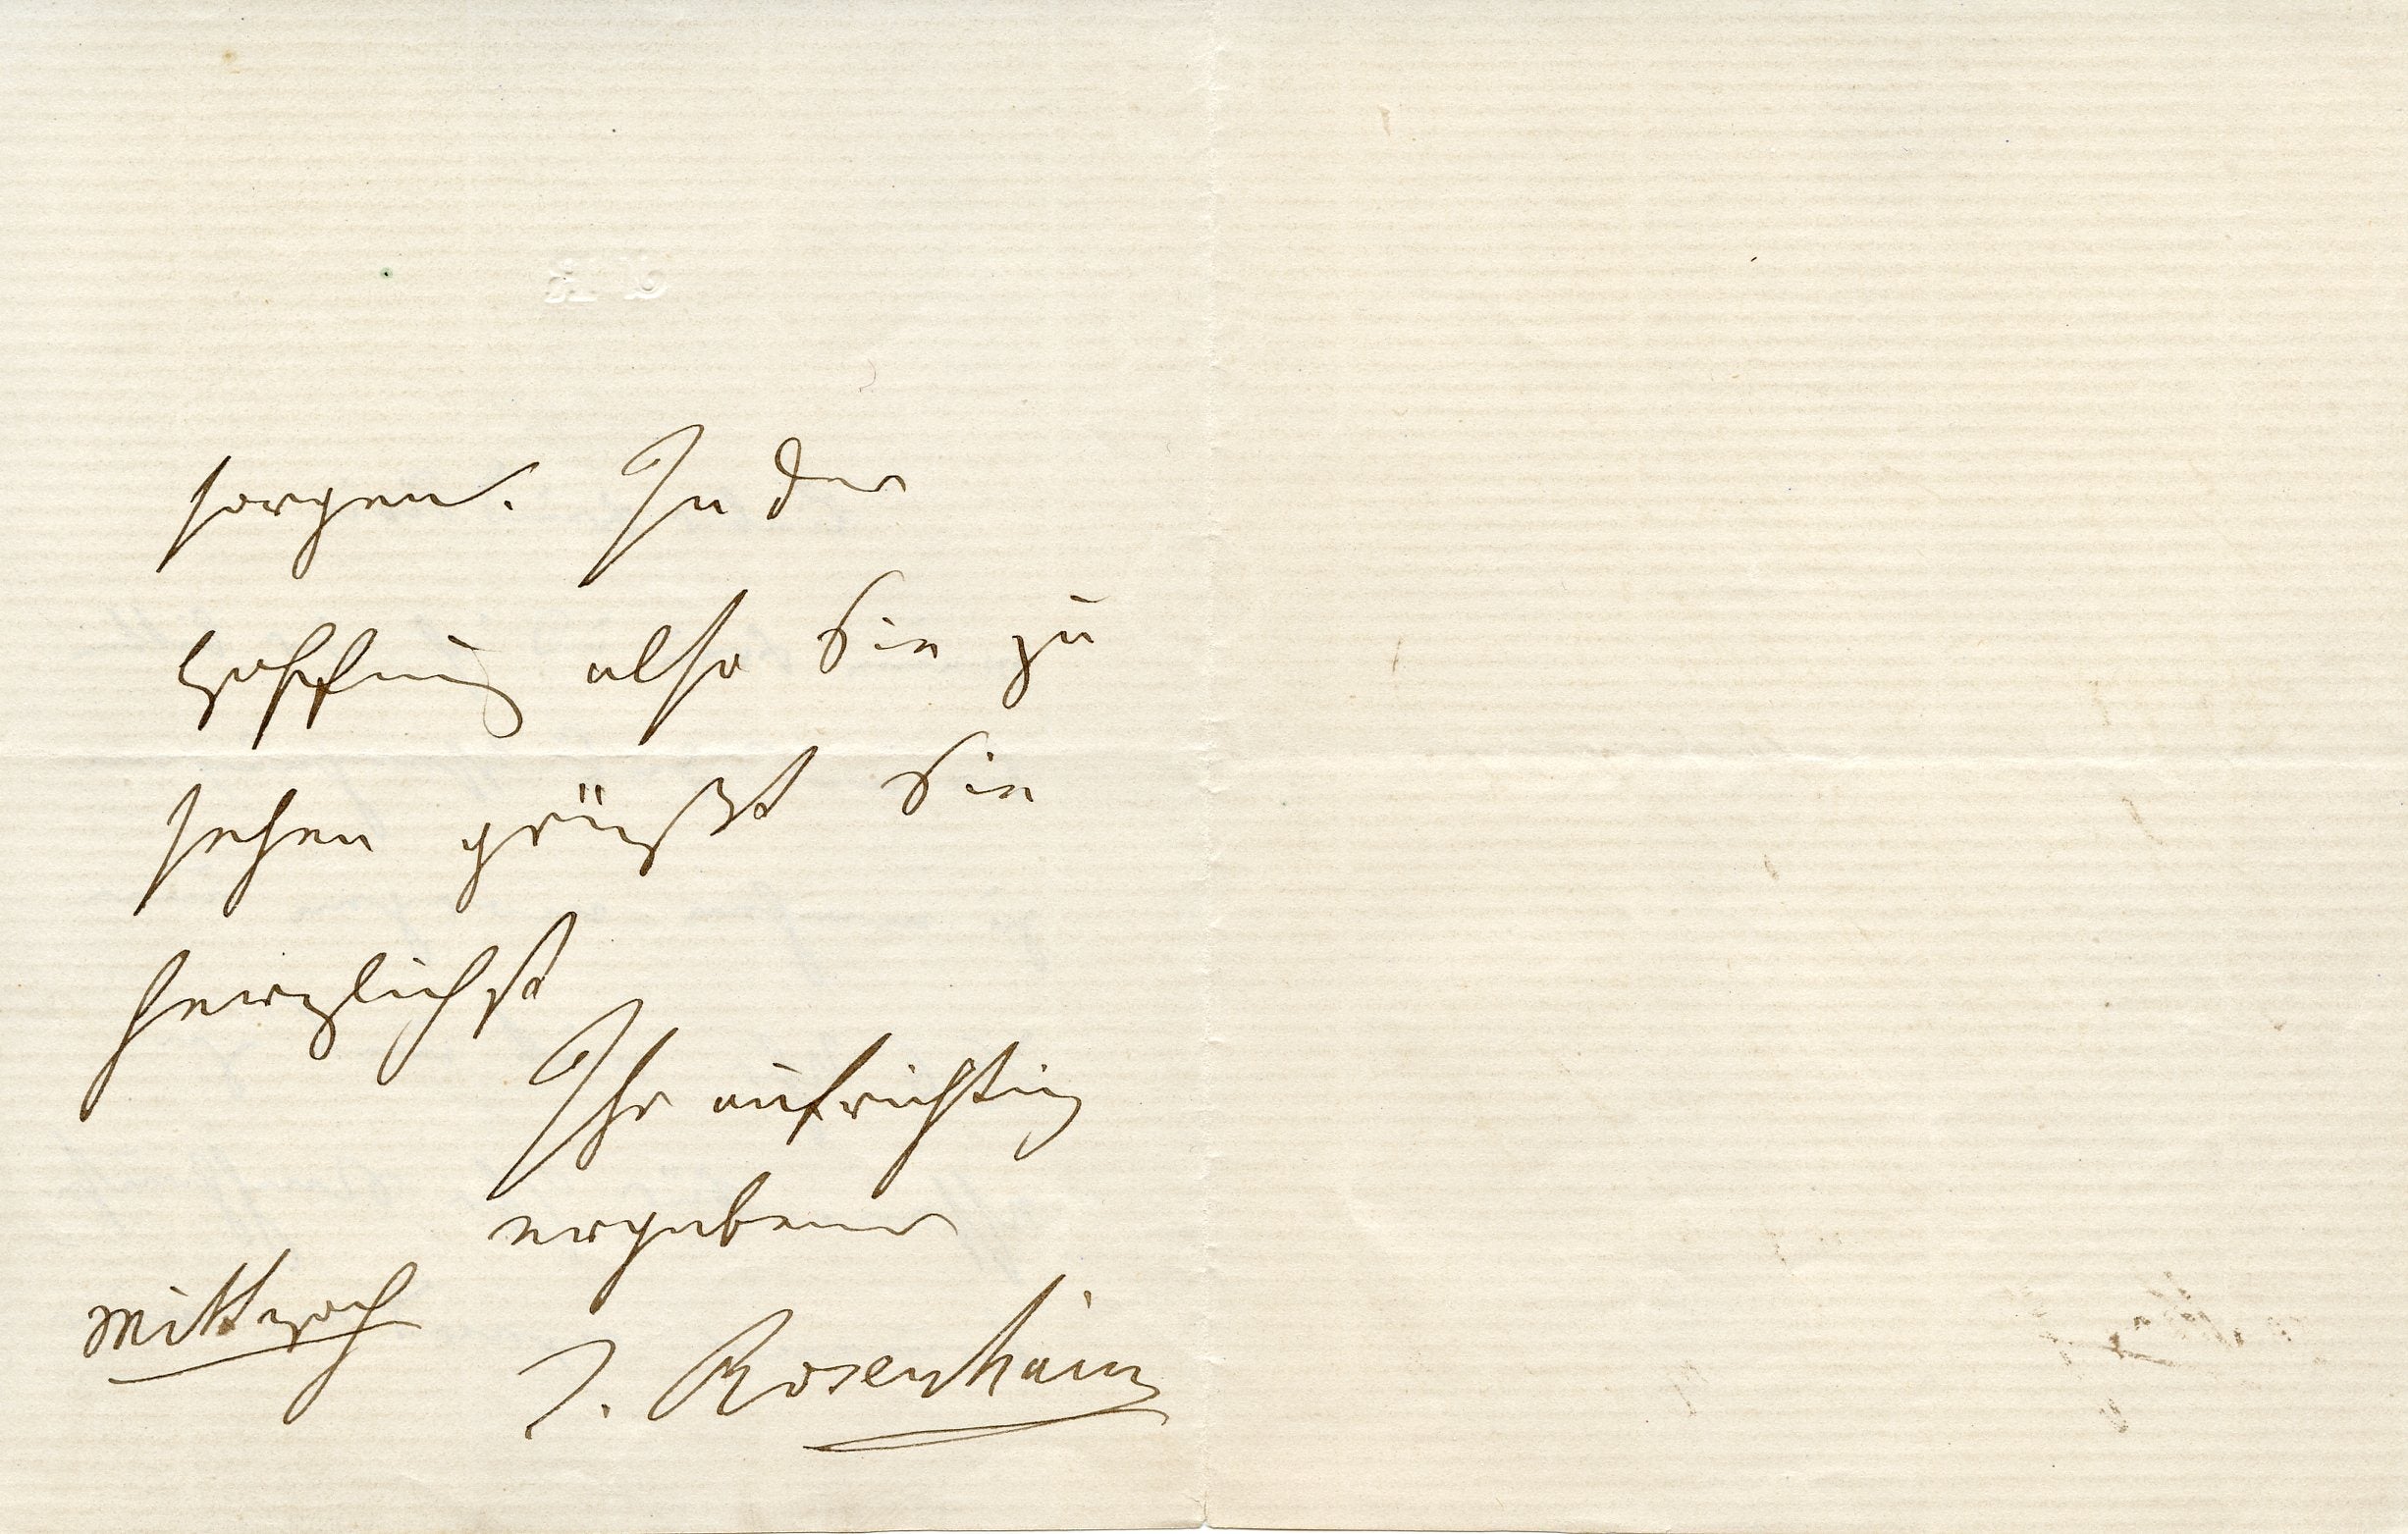 sorgen. In der
Hoffnung also Sie zu
sehen grüßt Sie
herzlichst
Ihr aufrichtig
ergebener
Mittwoch
J. Rosenhain